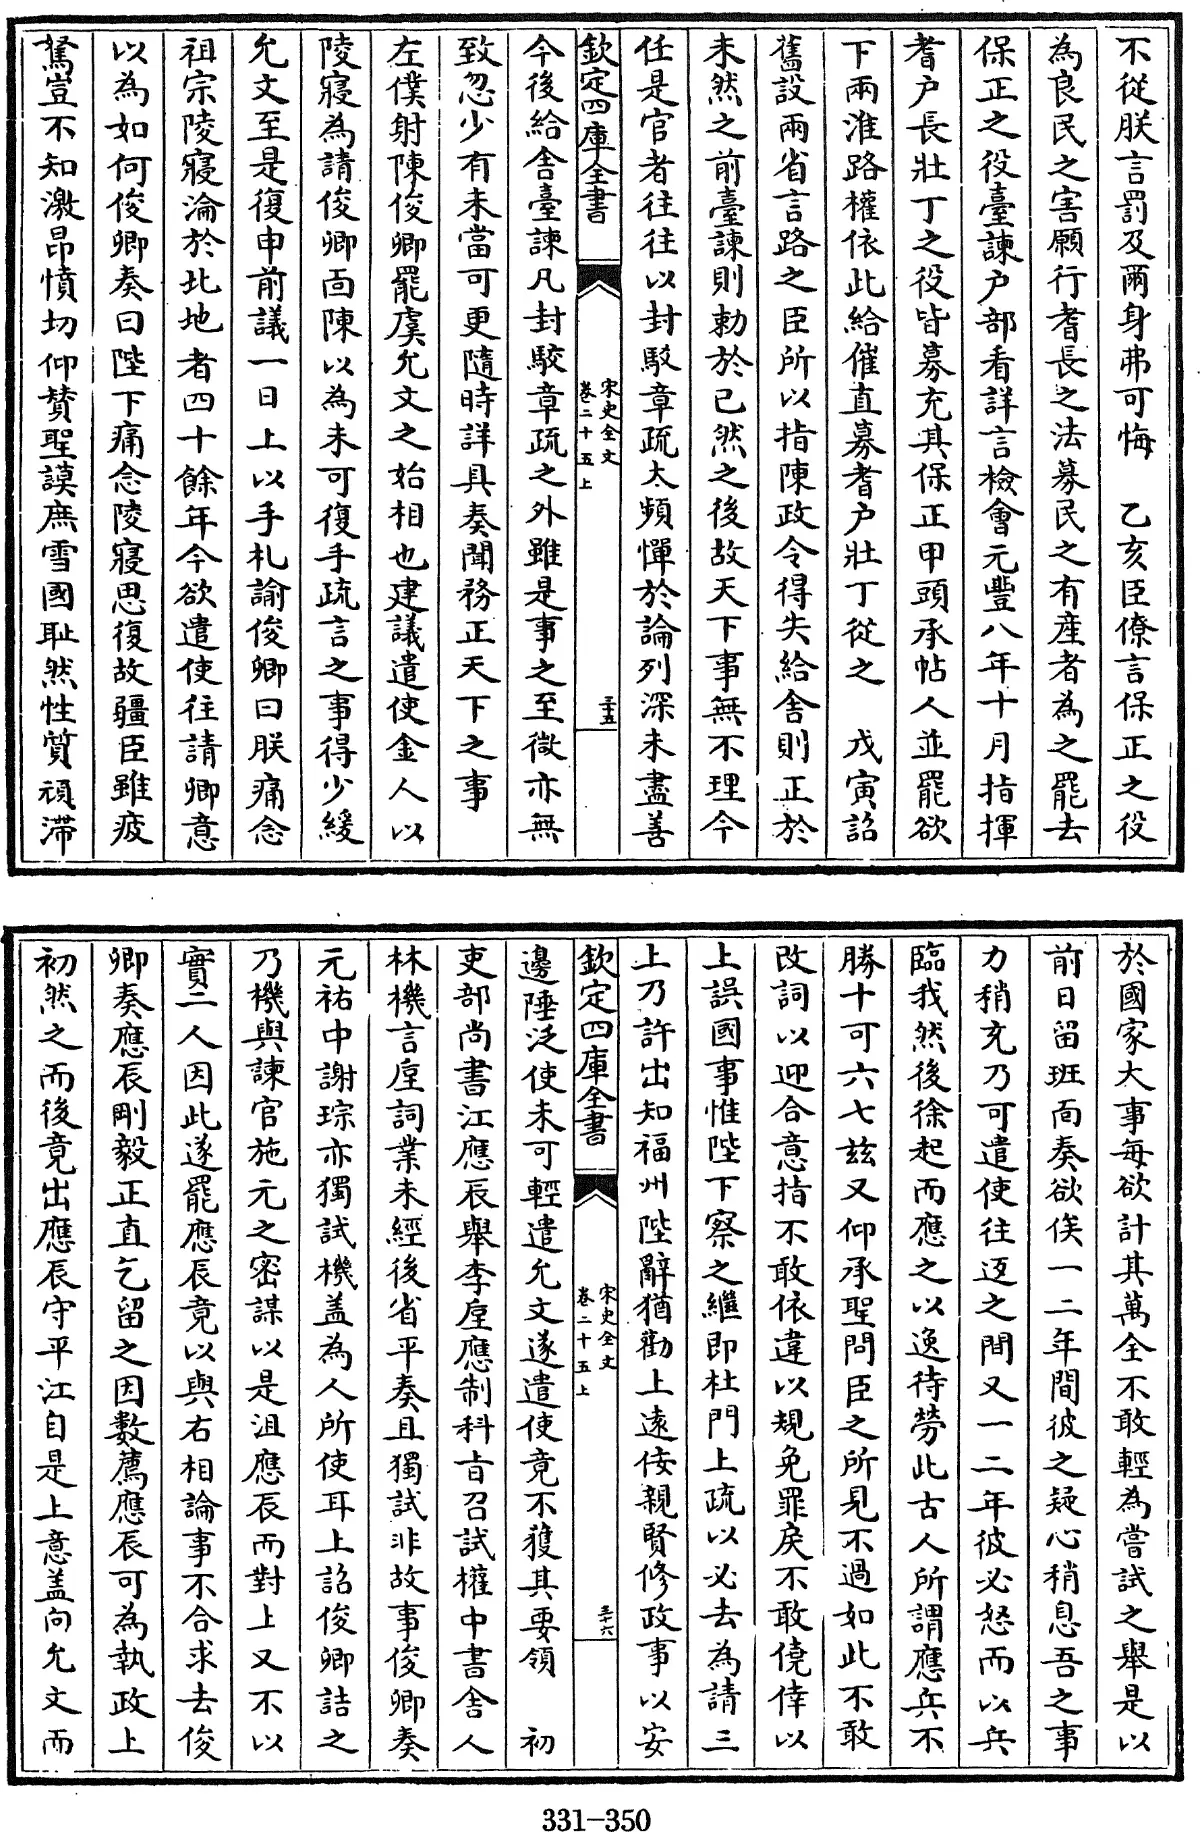 不從朕言罰及爾身弗可悔　乙亥臣僚言保正之役
為良民之害願行耆長之法募民之有產者為之罷去
保正之役臺諫户部看詳言檢會元豐八年十月指揮
耆户長壯丁之役皆募充其保正甲頭承帖人並罷欲
下兩淮路權依此給催直募耆户壯丁從之　戊寅詔
舊設兩省言路之臣所以指陳政令得失給舍則正於
未然之前臺諫則勅於已然之後故天下事無不理今
任是官者往往以封駁章疏太頻憚於論列深未盡善
欽定四庫全書
宋史全文
卷二十五上
三十五
今後給舍臺諫凡封駮章疏之外雖是事之至微亦無
致忽少有未當可更隨時詳具奏聞務正天下之事
左僕射陳俊卿罷虞允文之始相也建議遣使金人以
陵寢為請俊卿面陳以為未可復手疏言之事得少緩
允文至是復申前議一日上以手札諭俊卿曰朕痛念
祖宗陵寢淪於北地者四十餘年今欲遣使往請卿意
以為如何俊卿奏曰陛下痛念陵寢思復故疆臣雖疲
駑豈不知激昂憤切仰贊聖謨庶雪國耻然性質頑滯
於國家大事每欲計其萬全不敢輕為嘗試之舉是以
前日留班面奏欲俟一二年間彼之疑心稍息吾之事
力稍充乃可遣使往返之間又一二年彼必怒而以兵
臨我然後徐起而應之以逸待勞此古人所謂應兵不
勝十可六七兹又仰承聖問臣之所見不過如此不敢
改詞以迎合意指不敢依違以規免罪戾不敢僥倖以
上誤國事惟陛下察之繼即杜門上疏以必去為請三
上乃許出知福州陛辭猶勸上遠佞親賢修政事以安
欽定四庫全書
宋史全文
卷二十五上
三十六
邊陲泛使未可輕遣允文遂遣使竟不獲其要領　初
吏部尚書汪應辰舉李垕應制科㫖召試權中書舍人
林機言垕詞業未經後省平奏且獨試非故事俊卿奏
元祐中謝琮亦獨試機盖為人所使耳上詔俊卿詰之
乃機與諫官施元之密謀以是沮應辰而對上又不以
實二人因此遂罷應辰竟以與右相論事不合求去俊
卿奏應辰剛毅正直乞留之因數薦應辰可為執政上
初然之而後竟出應辰守平江自是上意盖向允文而
331-350